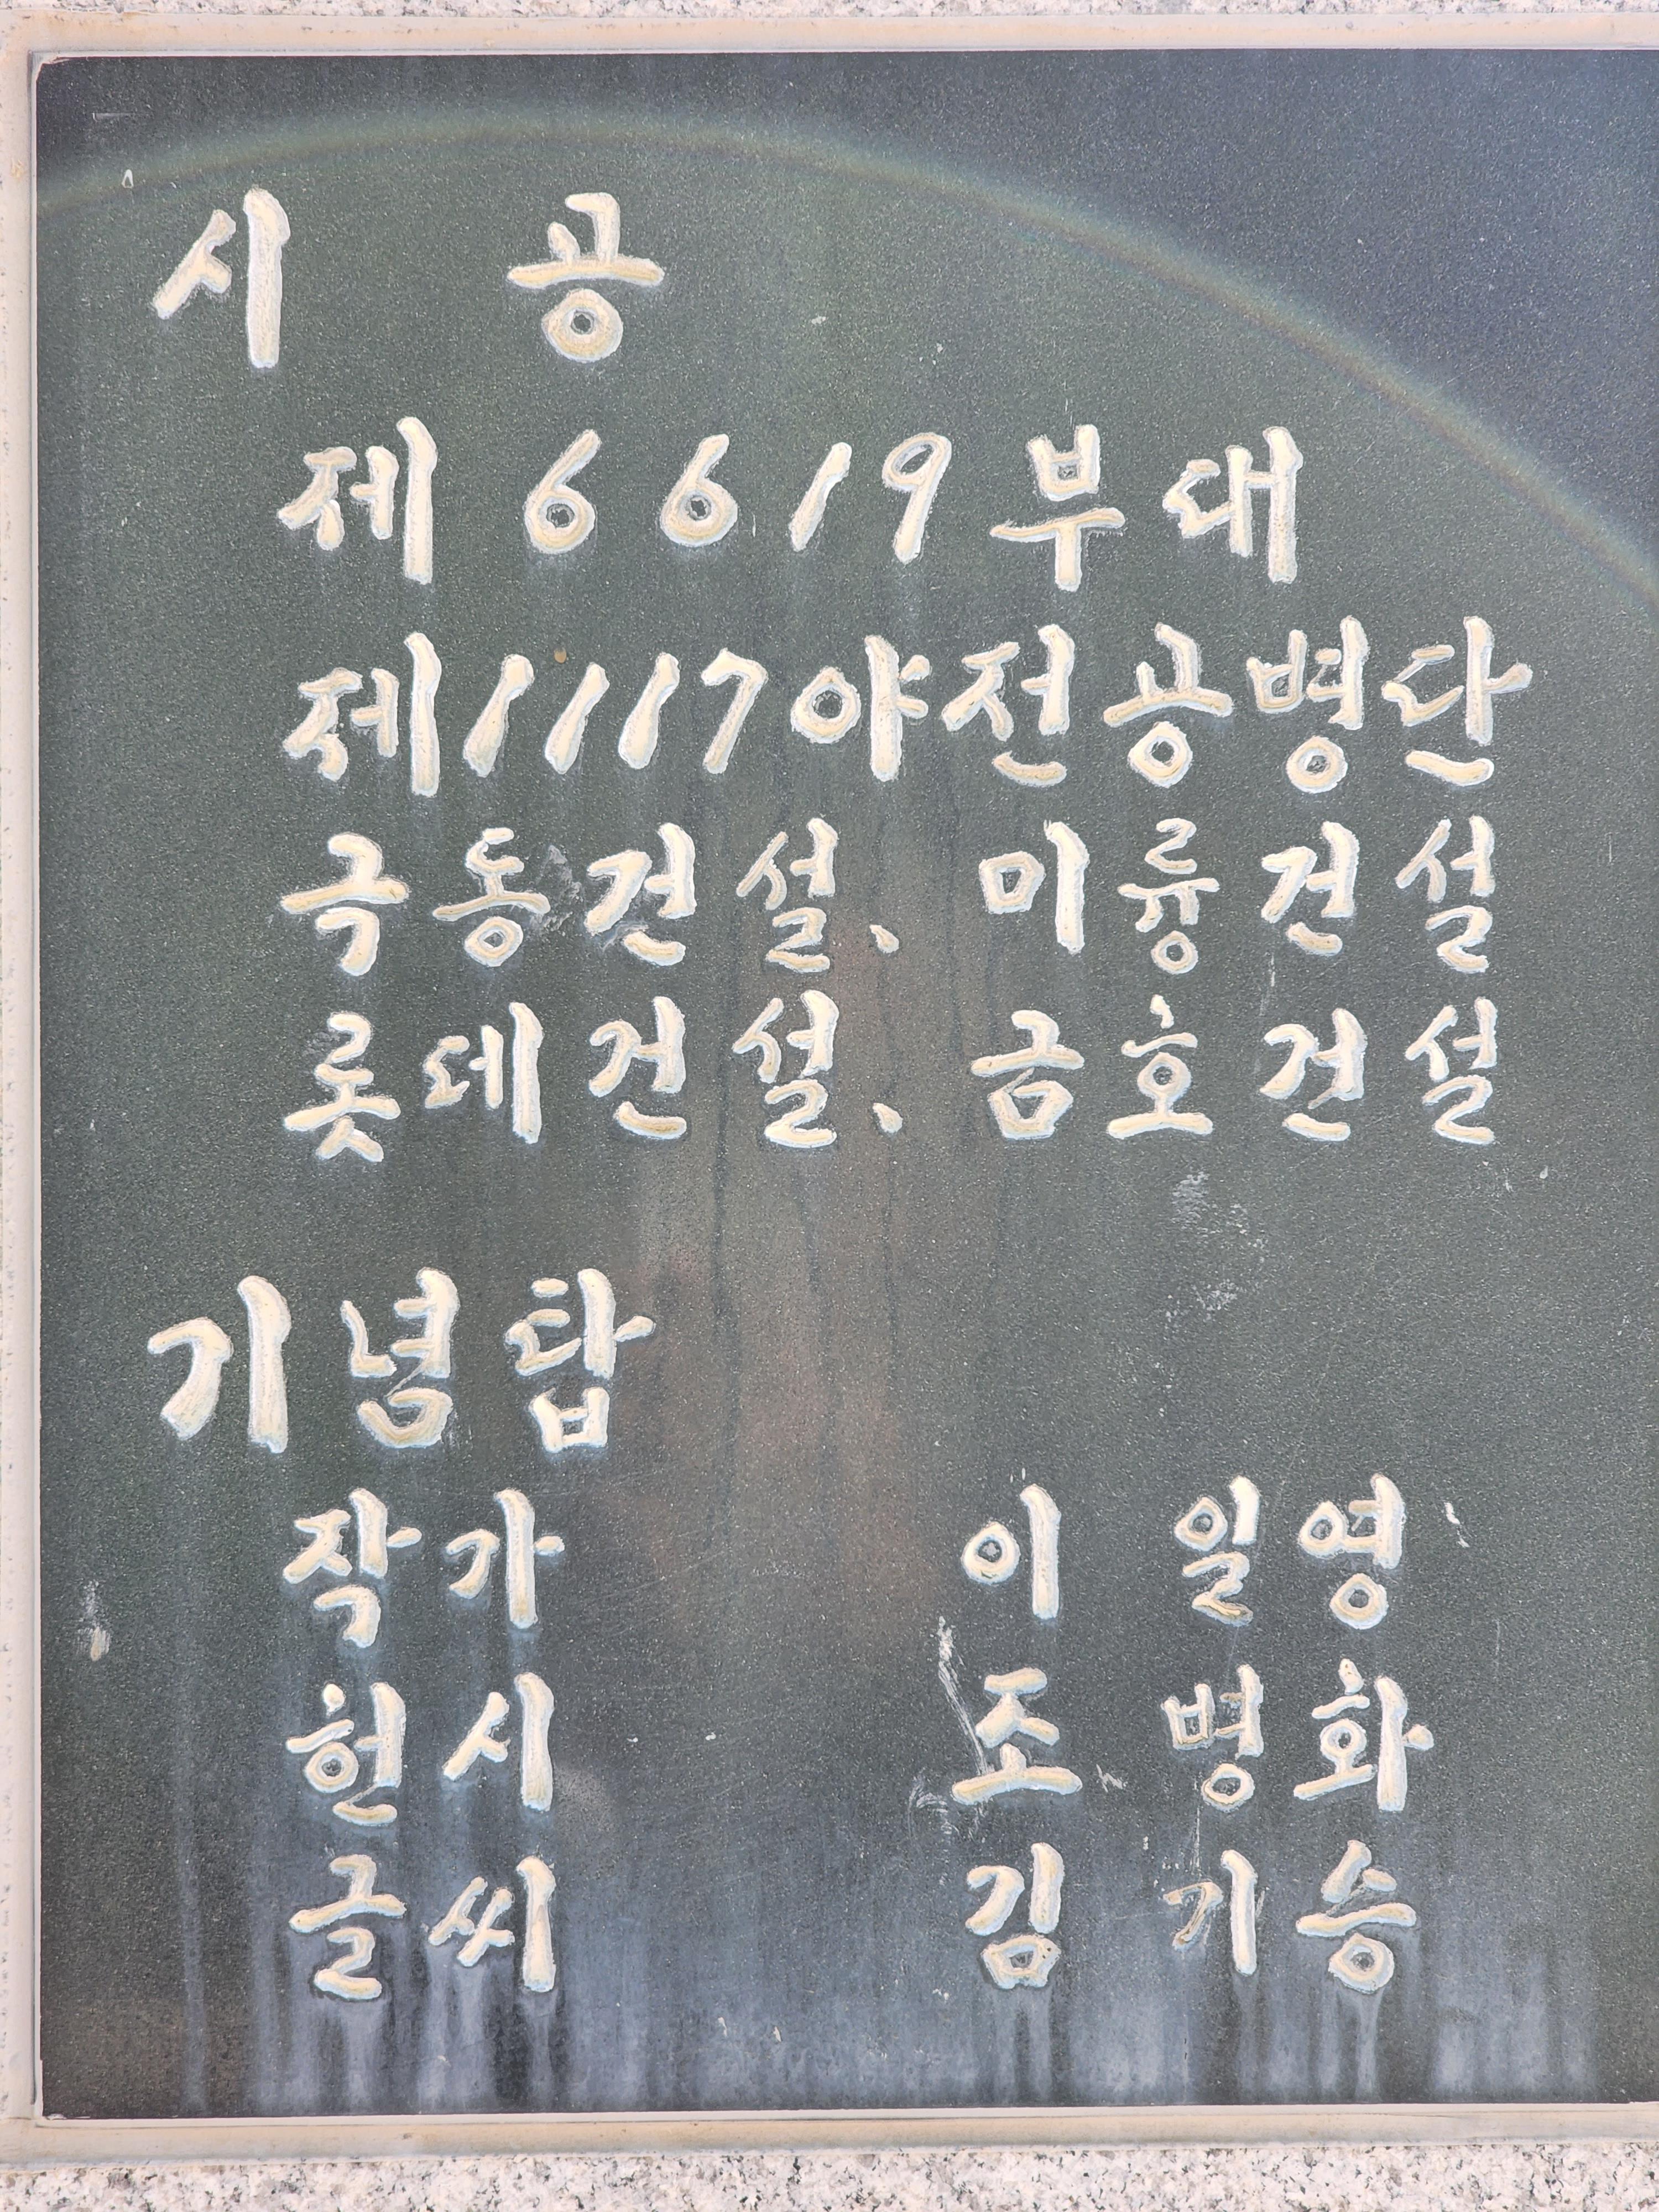 시 공
제 6619 부대
제1117야전공병단
극동건설、미륭건설
롯데건설、금호건설
기념탑
작가 이 일영
헌시 조 병화
글씨 김 기승